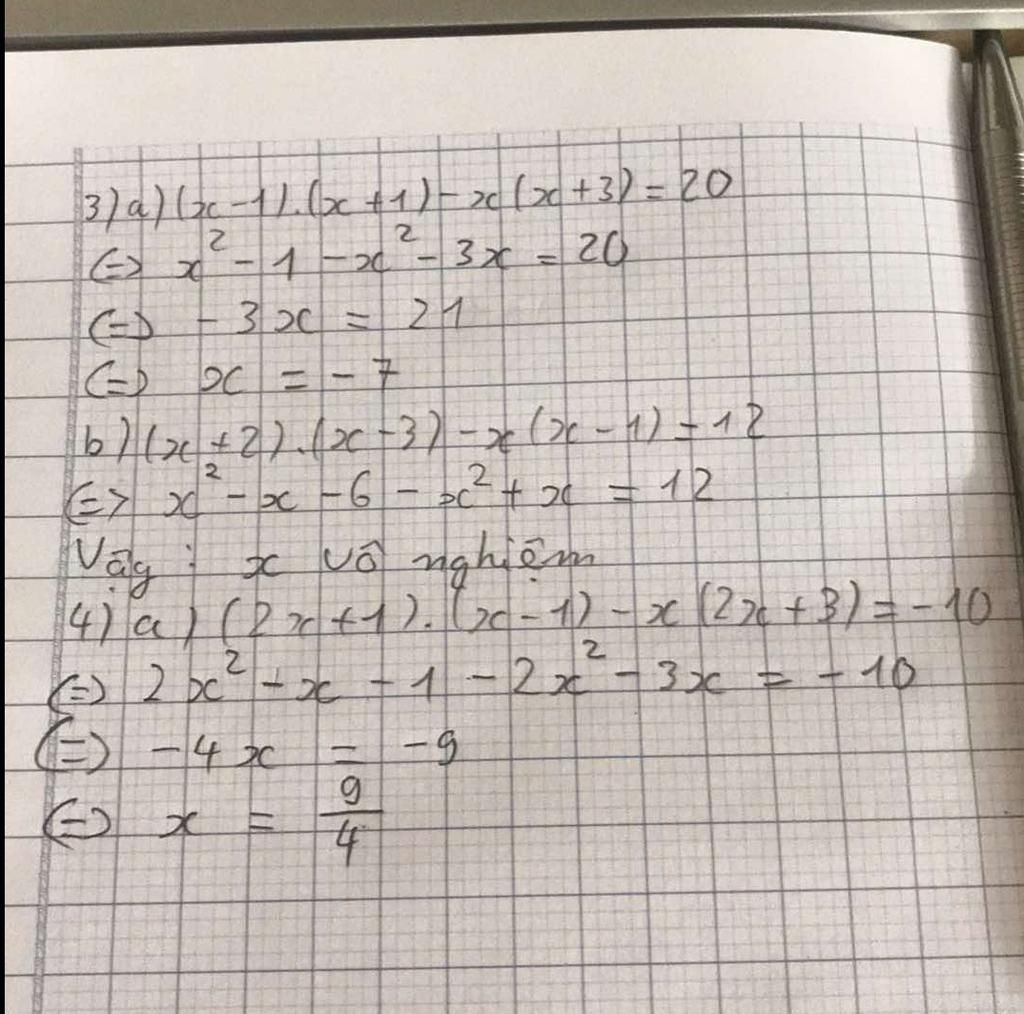 3) a) (x-1).(x+1)-x(x+3)=20
(=) x² - 1 - x² - 3x = 20
(=) - 3x = 21
(=) x = - 7
b) (x+2).(x-3)-x(x-1)=12
(=> x² - x - 6 - x² + x = 12
Vậy : x vô nghiệm
4) a) (2x+1).(x-1)-x(2x+3)=-10
(=) 2x² - x - 1 - 2x² - 3x = - 10
(=) - 4x = - 9
(=) x = 9/4